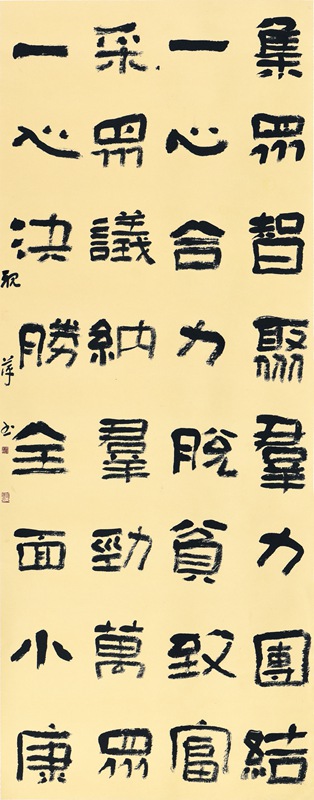 集眾智聚羣力團結
一心合力脫貧致富
采眾議納羣勁萬眾
一心決勝全面小康
萍书